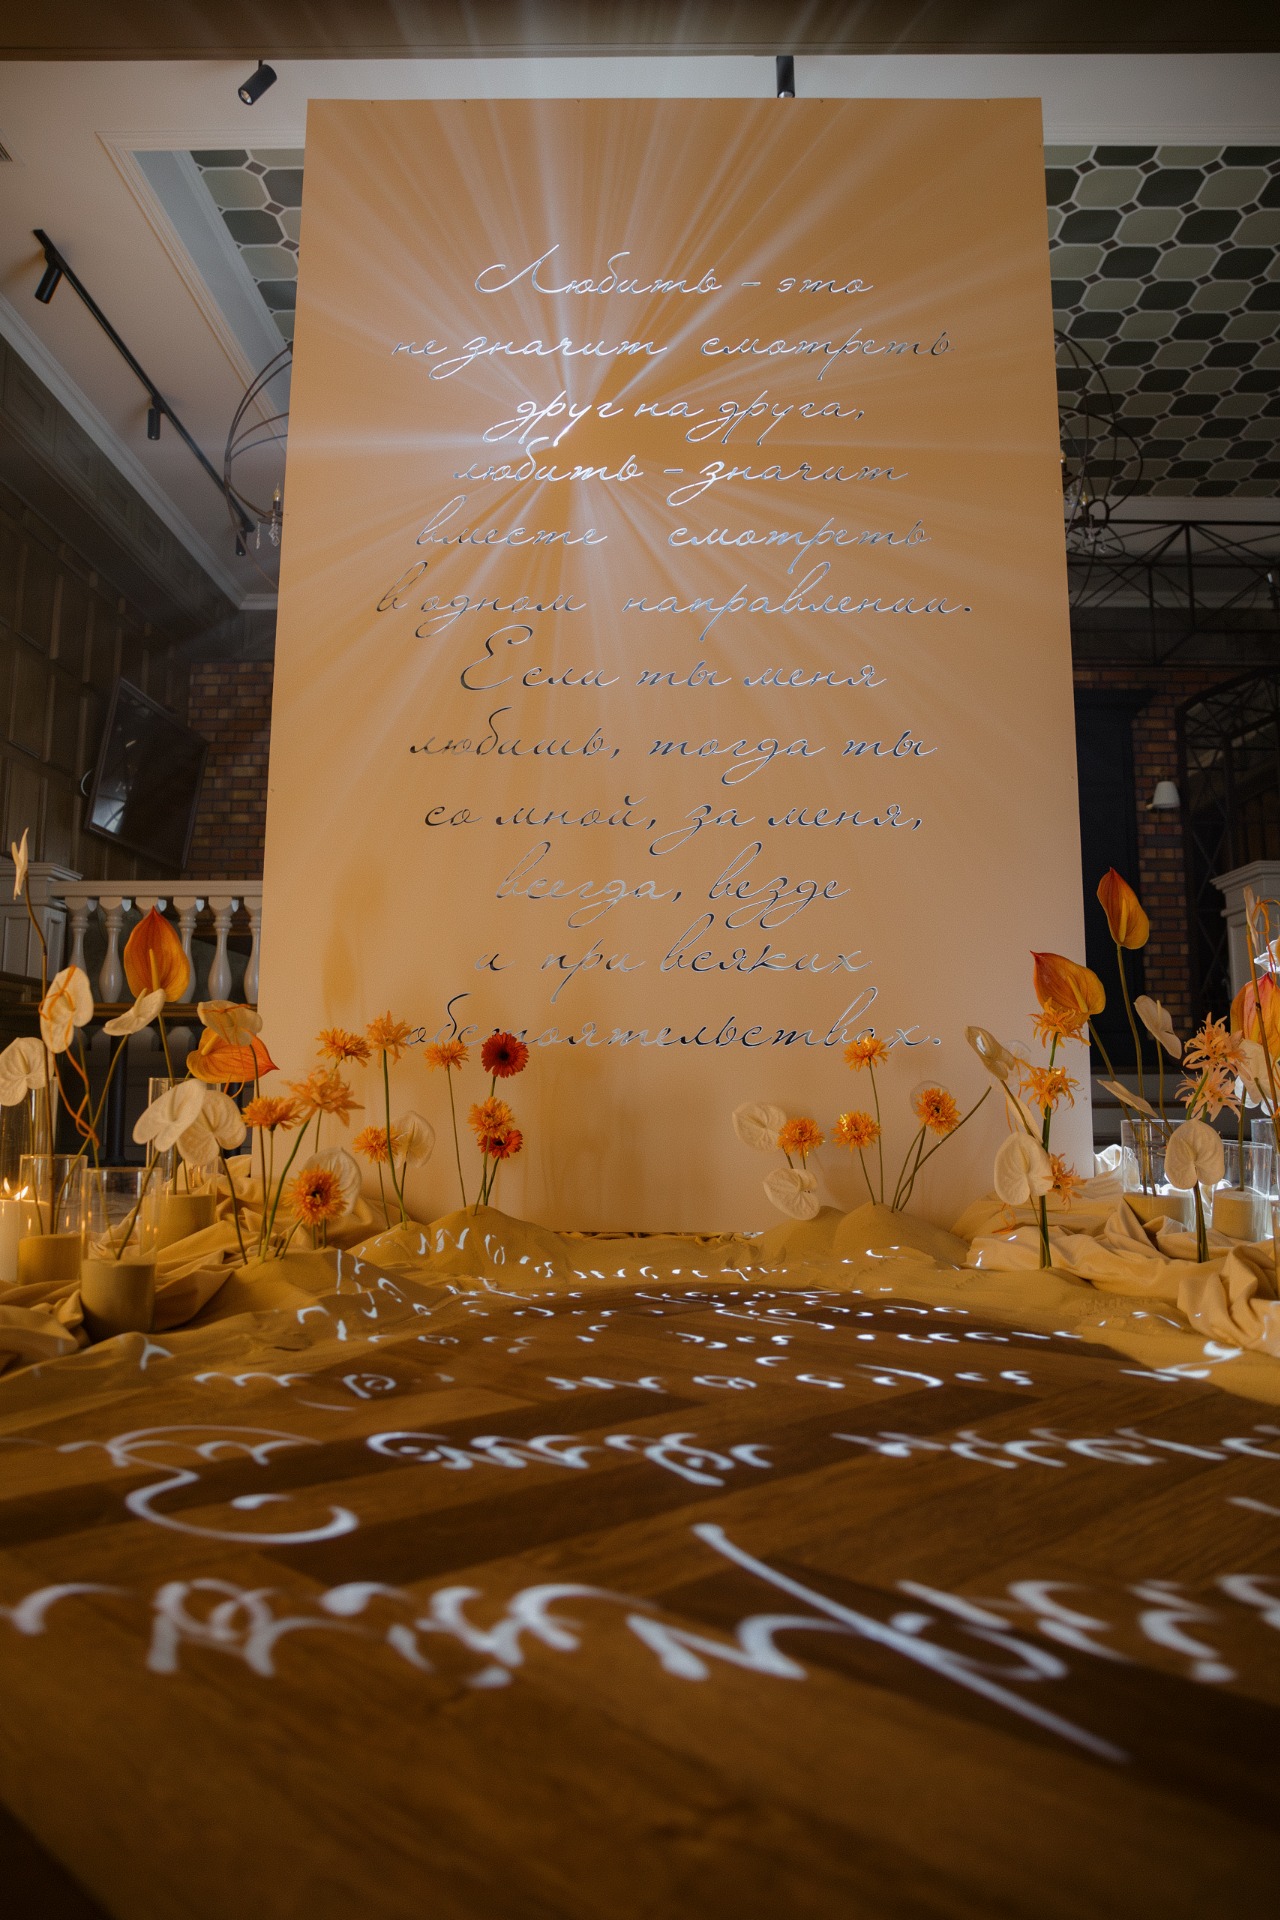 Любить - это
не значит смотреть
друг на друга,
любить - значит
вместе смотреть
в одном направлении.
Если ты меня
любишь, тогда ты
со мной, за меня,
всегда, везде
и при всяких
обстоятельствах.